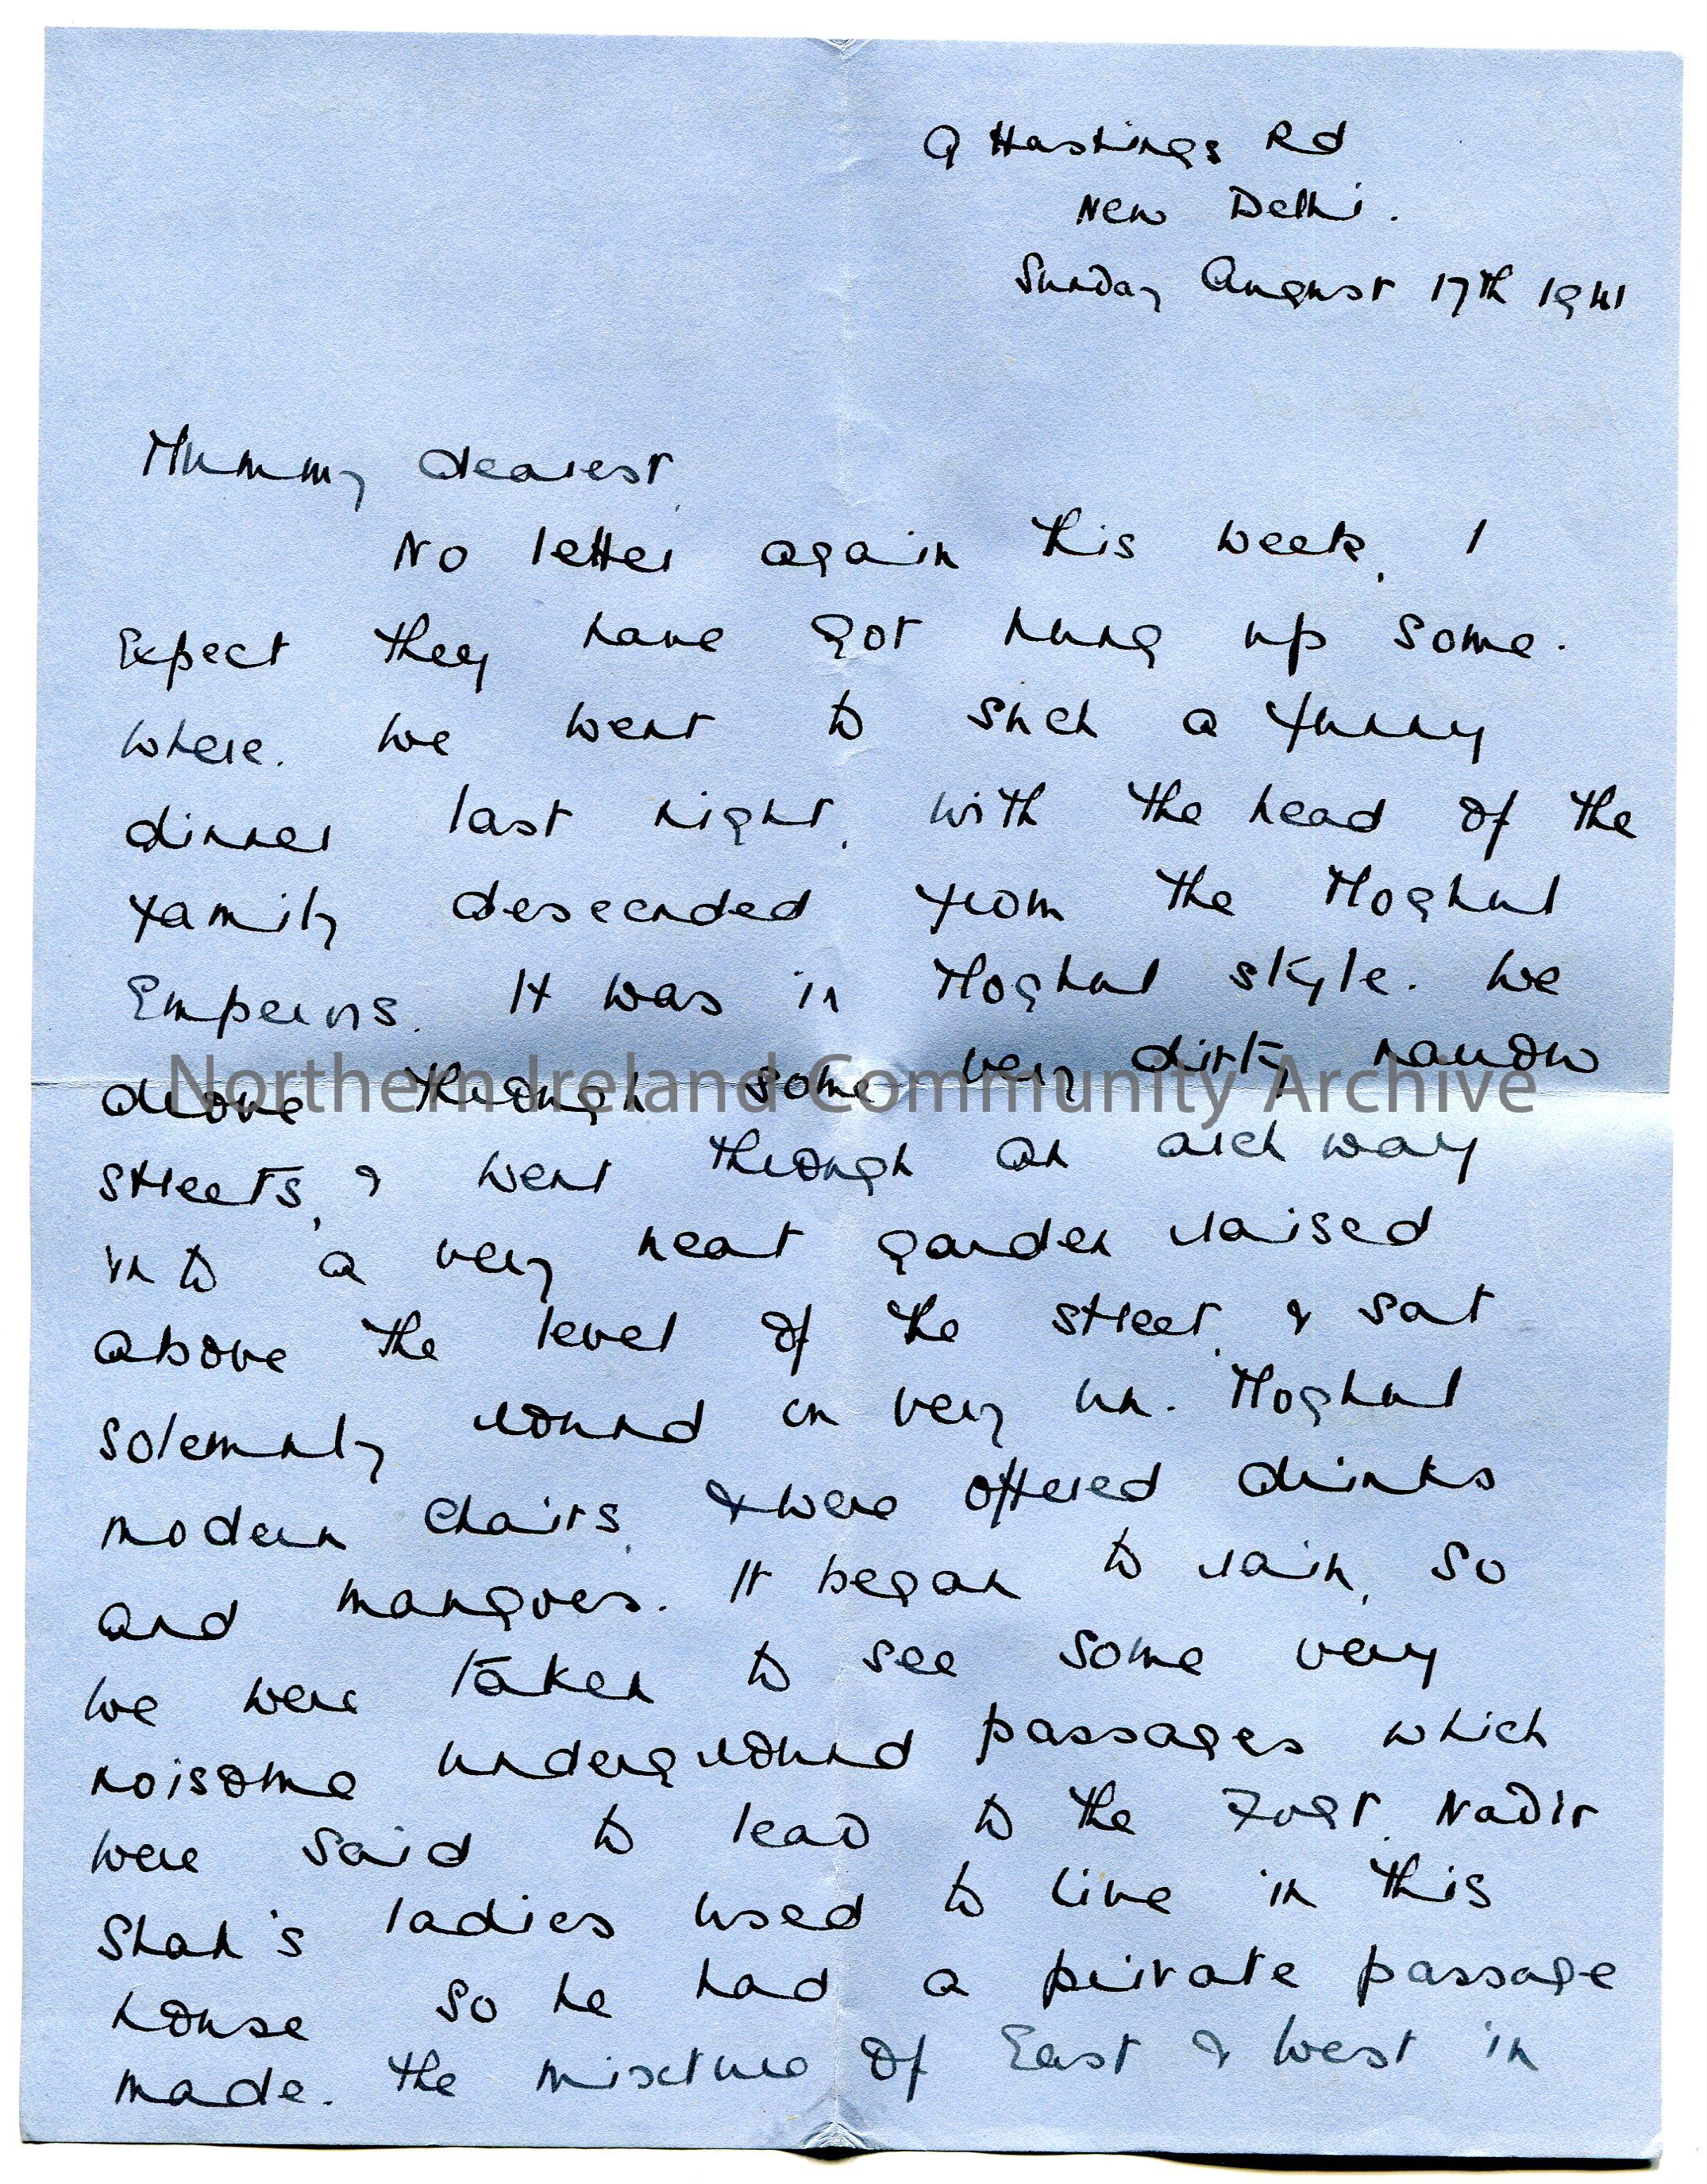 9 Hastings Rd
New Delhi.
Sunday August 17th 1941
Mummy dearest,
No letter again this week, I
Expect they have got hung up some-
where. We went to such a funny
dinner last night, with the head of the
family descended from the Moghul
Emperors. It was in Moghul style. We
drove through some very dirty narrow
Northern Ireland Community Archive
streets, & went through an arch way
into a very neat garden raised
above the level of the street, & sat
solemnly round in very un-Moghul
modern chairs, & were offered drinks
and mangoes. It began to rain, so
we were taken to see some very
noisome underground passages which
were said to lead to the Fort. Nadir
Shah's ladies used to live in this
house so he had a private passage
made. The mixture of East & West in